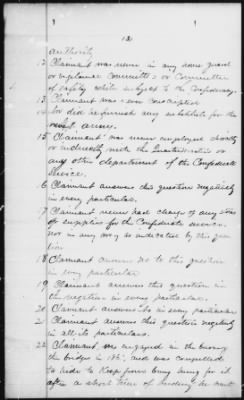 authority
12 Claimant was never in any home guard
or vigilance Committee or Committee
of safety while subject to the Confederacy.
13 Claimant was conscription
14 Nor did he furnish any substitute for the
rebel army.
15 Claimant was never employed directly
or indirectly with the Quartermaster or
any other department of the Confederate
Service.
16 Claimant answers this question negatively
in every particular.
17 Claimant never had charge of any stores
or supplies for the Confederate service.
nor in any way as indicated by this question
18 Claimant answers no to this question
in every particular
19 Claimant answers this question in
the negative in every particular.
20 Claimant answers no in every particular
21 Claimant answers this question negatively
in all its particulars.
22 Claimant was engaged in the burning
the bridges in 1861, and was compelled
to hide to keep from being hung for it
after a short time of hiding he went